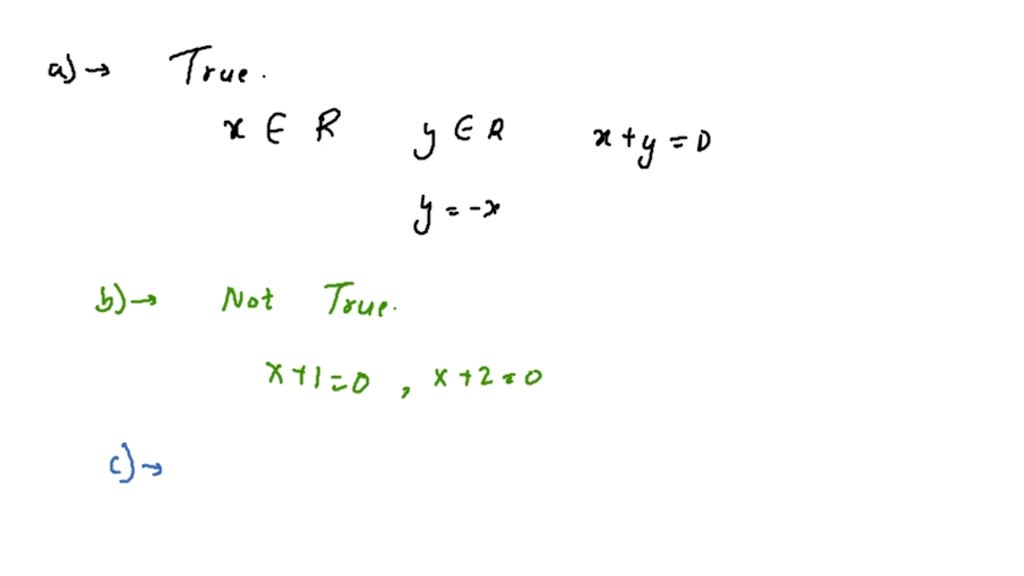 a) → True.
x ∈ R y ∈ R x + y = 0
y = -x
b) → Not True.
x + 1 = 0 , x + 2 = 0
c) →